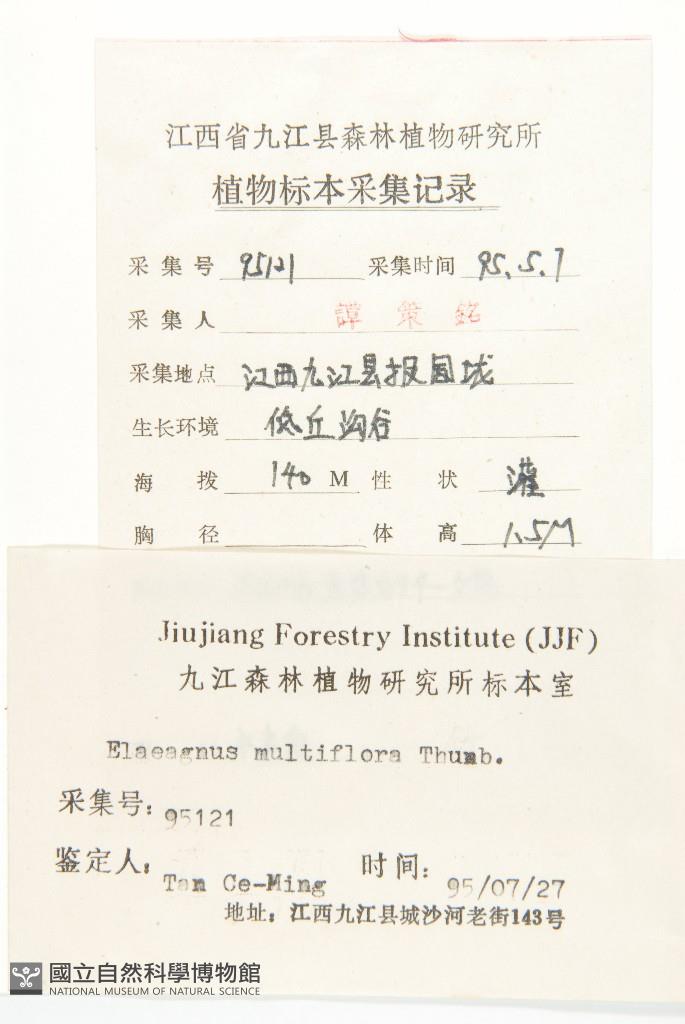 江西省九江县森林植物研究所
植物标本采集记录
采集号 95121 采集时间 95.5.7
采集人 譚策銘
采集地点 江西九江县报国垅
生长环境 低丘沟谷
海拨 140 M 性状 灌
胸径 体高 1.5M
Jiujiang Forestry Institute (JJF)
九江森林植物研究所标本室
Elaeagnus multiflora Thumb.
采集号: 95121
鉴定人: Tan Ce-Ming 时间: 95/07/27
地址: 江西九江县城沙河老街143号
國立自然科學博物館
NATIONAL MUSEUM OF NATURAL SCIENCE